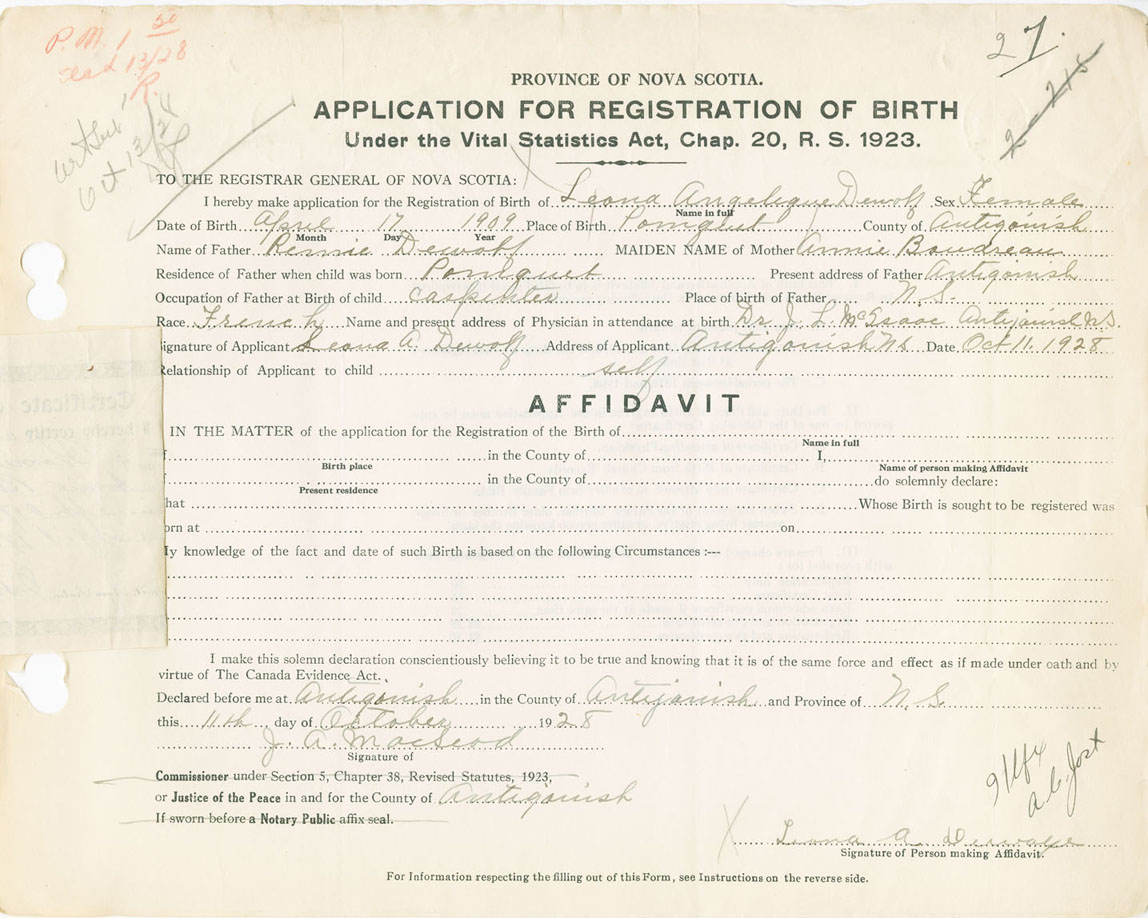 P. M. 1 50
13/28
R.
Oct 13/24
27.
2 a 245
PROVINCE OF NOVA SCOTIA.
APPLICATION FOR REGISTRATION OF BIRTH
Under the Vital Statistics Act, Chap. 20, R. S. 1923.
TO THE REGISTRAR GENERAL OF NOVA SCOTIA:
I hereby make application for the Registration of Birth of Leona Angelique Dewolf Sex Female
Name in full
Date of Birth April 17 1909 Place of Birth Pomquet County of Antigonish
Month Day Year
Name of Father Remie Dewolf MAIDEN NAME of Mother Annie Boudreau
Residence of Father when child was born Pomquet Present address of Father Antigonish
Occupation of Father at Birth of child carpenter Place of birth of Father N.S.
Race French Name and present address of Physician in attendance at birth Dr. J. L. McIsaac Antigonish N.S.
ignature of Applicant Leona A. Dewolf Address of Applicant Antigonish NS Date Oct 11. 1928
Relationship of Applicant to child self
AFFIDAVIT
IN THE MATTER of the application for the Registration of the Birth of
Name in full
in the County of I,
Birth place Name of person making Affidavit
in the County of do solemnly declare:
Present residence
hat Whose Birth is sought to be registered was
orn at on
y knowledge of the fact and date of such Birth is based on the following Circumstances :---
I make this solemn declaration conscientiously believing it to be true and knowing that it is of the same force and effect as if made under oath and by
virtue of The Canada Evidence Act.
Declared before me at Antigonish in the County of Antigonish and Province of N.S.
this 11th day of October 1928
J. A. MacLeod
Signature of
Commissioner under Section 5, Chapter 38, Revised Statutes, 1923,
or Justice of the Peace in and for the County of Antigonish
If sworn before a Notary Public affix seal.
A. C. Jost
Leona A. Dewolfe
Signature of Person making Affidavit.
For Information respecting the filling out of this Form, see Instructions on the reverse side.